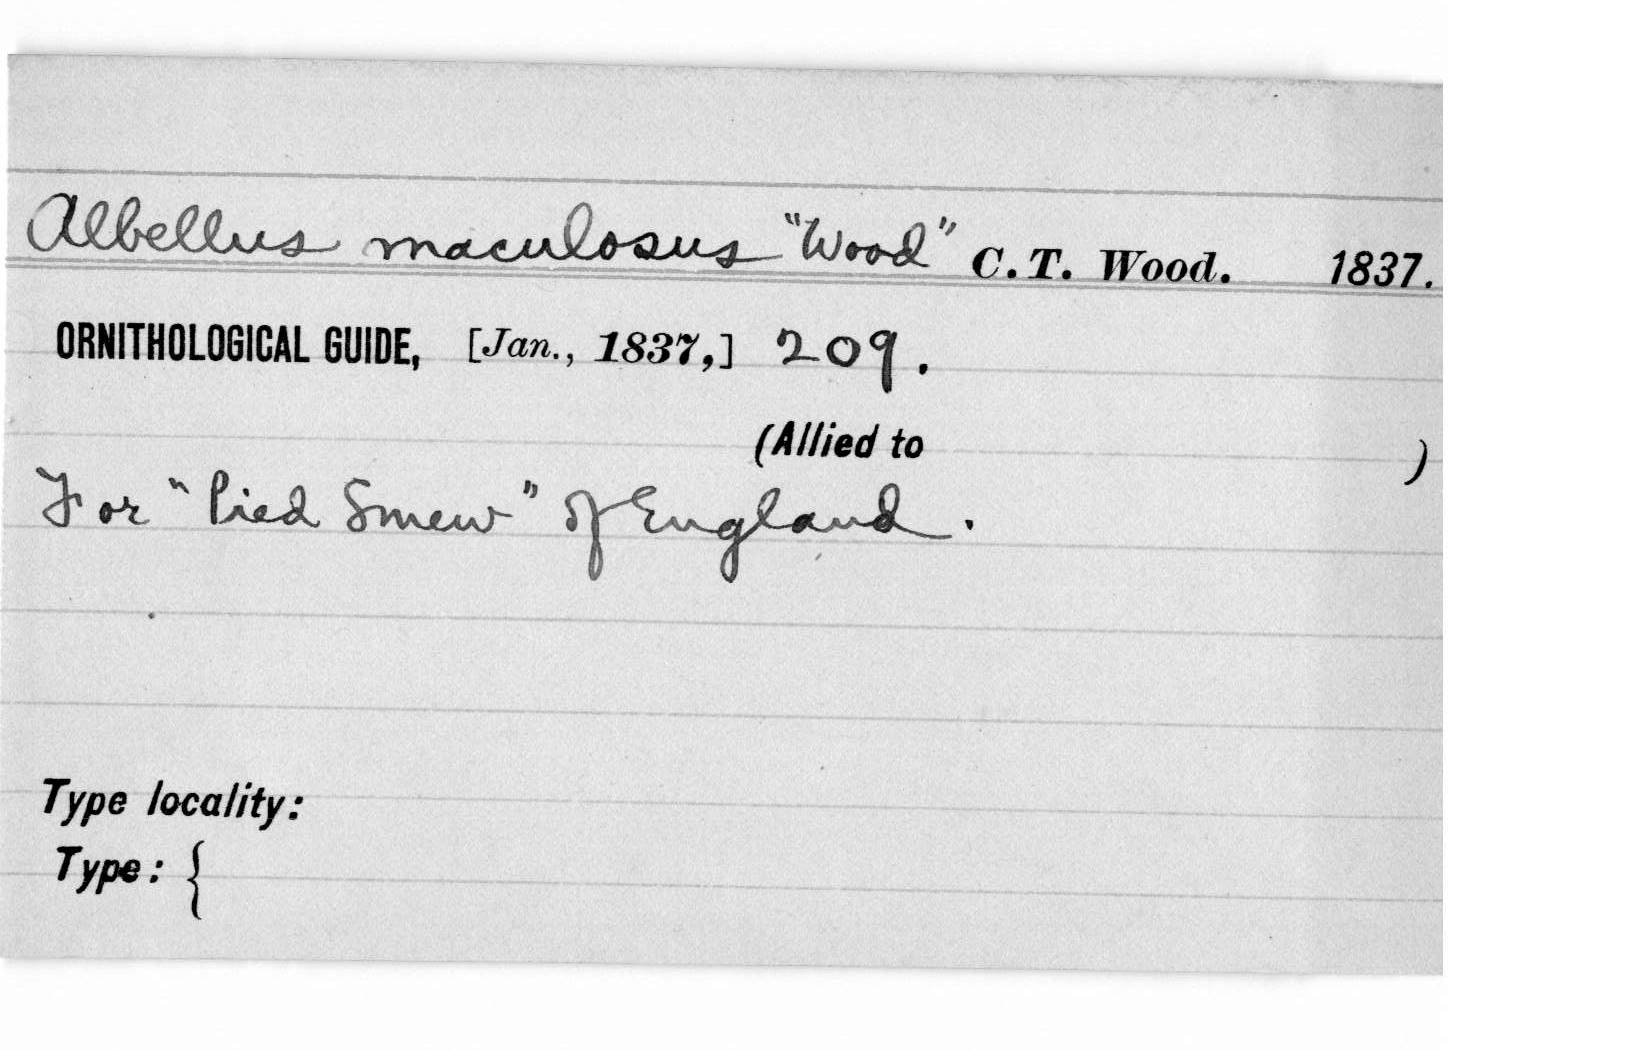 Albellus maculosus "Wood" C. T. Wood. 1837.
ORNITHOLOGICAL GUIDE, [Jan., 1837,] 209.
(Allied to )
For "Pied Smew" of England.
Type locality:
Type: {